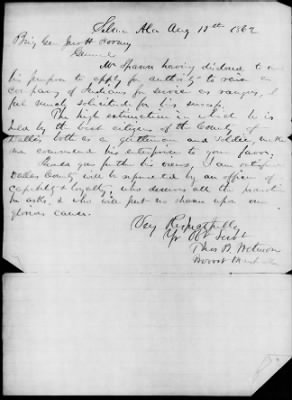 Selma Ala Aug 18th 1862
Brig Gen Jno H. Forney
General
Mr Spann having disclosed to me
his purpose to apply for authority to raise a
company of Indians for service as rangers, I
feel much solicitude for his success.
The high estimation in which he is
held by the best citizens of the County of
Dallas, both as a gentleman and soldier, make
me commend his enterprise to your favor.
Should you further his views, I am satisfied
Dallas County will be represented by an officer of
capability & loyalty, who deserves all the position
he asks, & who will put no shame upon our
glorious cause.
Very Respectfully
Yr Obt Servt
Thos B.
Provost Marshal